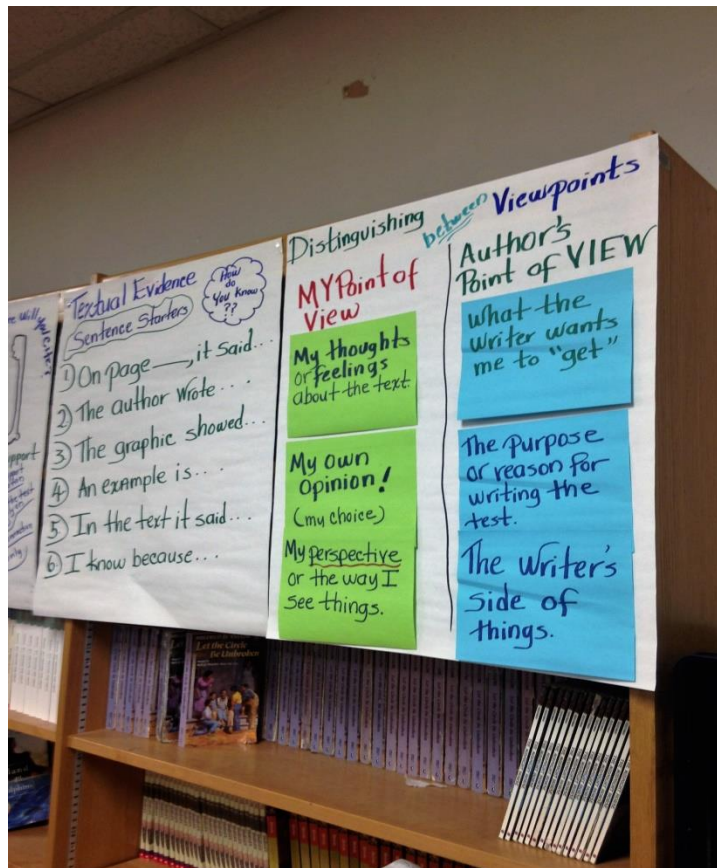 Textual Evidence
Sentence Starters
How
do
You Know
??
① On page ___, it said...
② The author wrote...
③ The graphic showed...
④ An example is...
⑤ In the text it said...
⑥ I know because...
Distinguishing between Viewpoints
MY Point of
View
My thoughts
or feelings
about the text.
My own
Opinion!
(my choice)
My perspective
or the way I
see things.
Author's
Point of VIEW
What the
Writer wants
me to "get"
The Purpose
or reason for
writing the
test.
The Writer's
side of
things.
Let the Circle
Be Unbroken